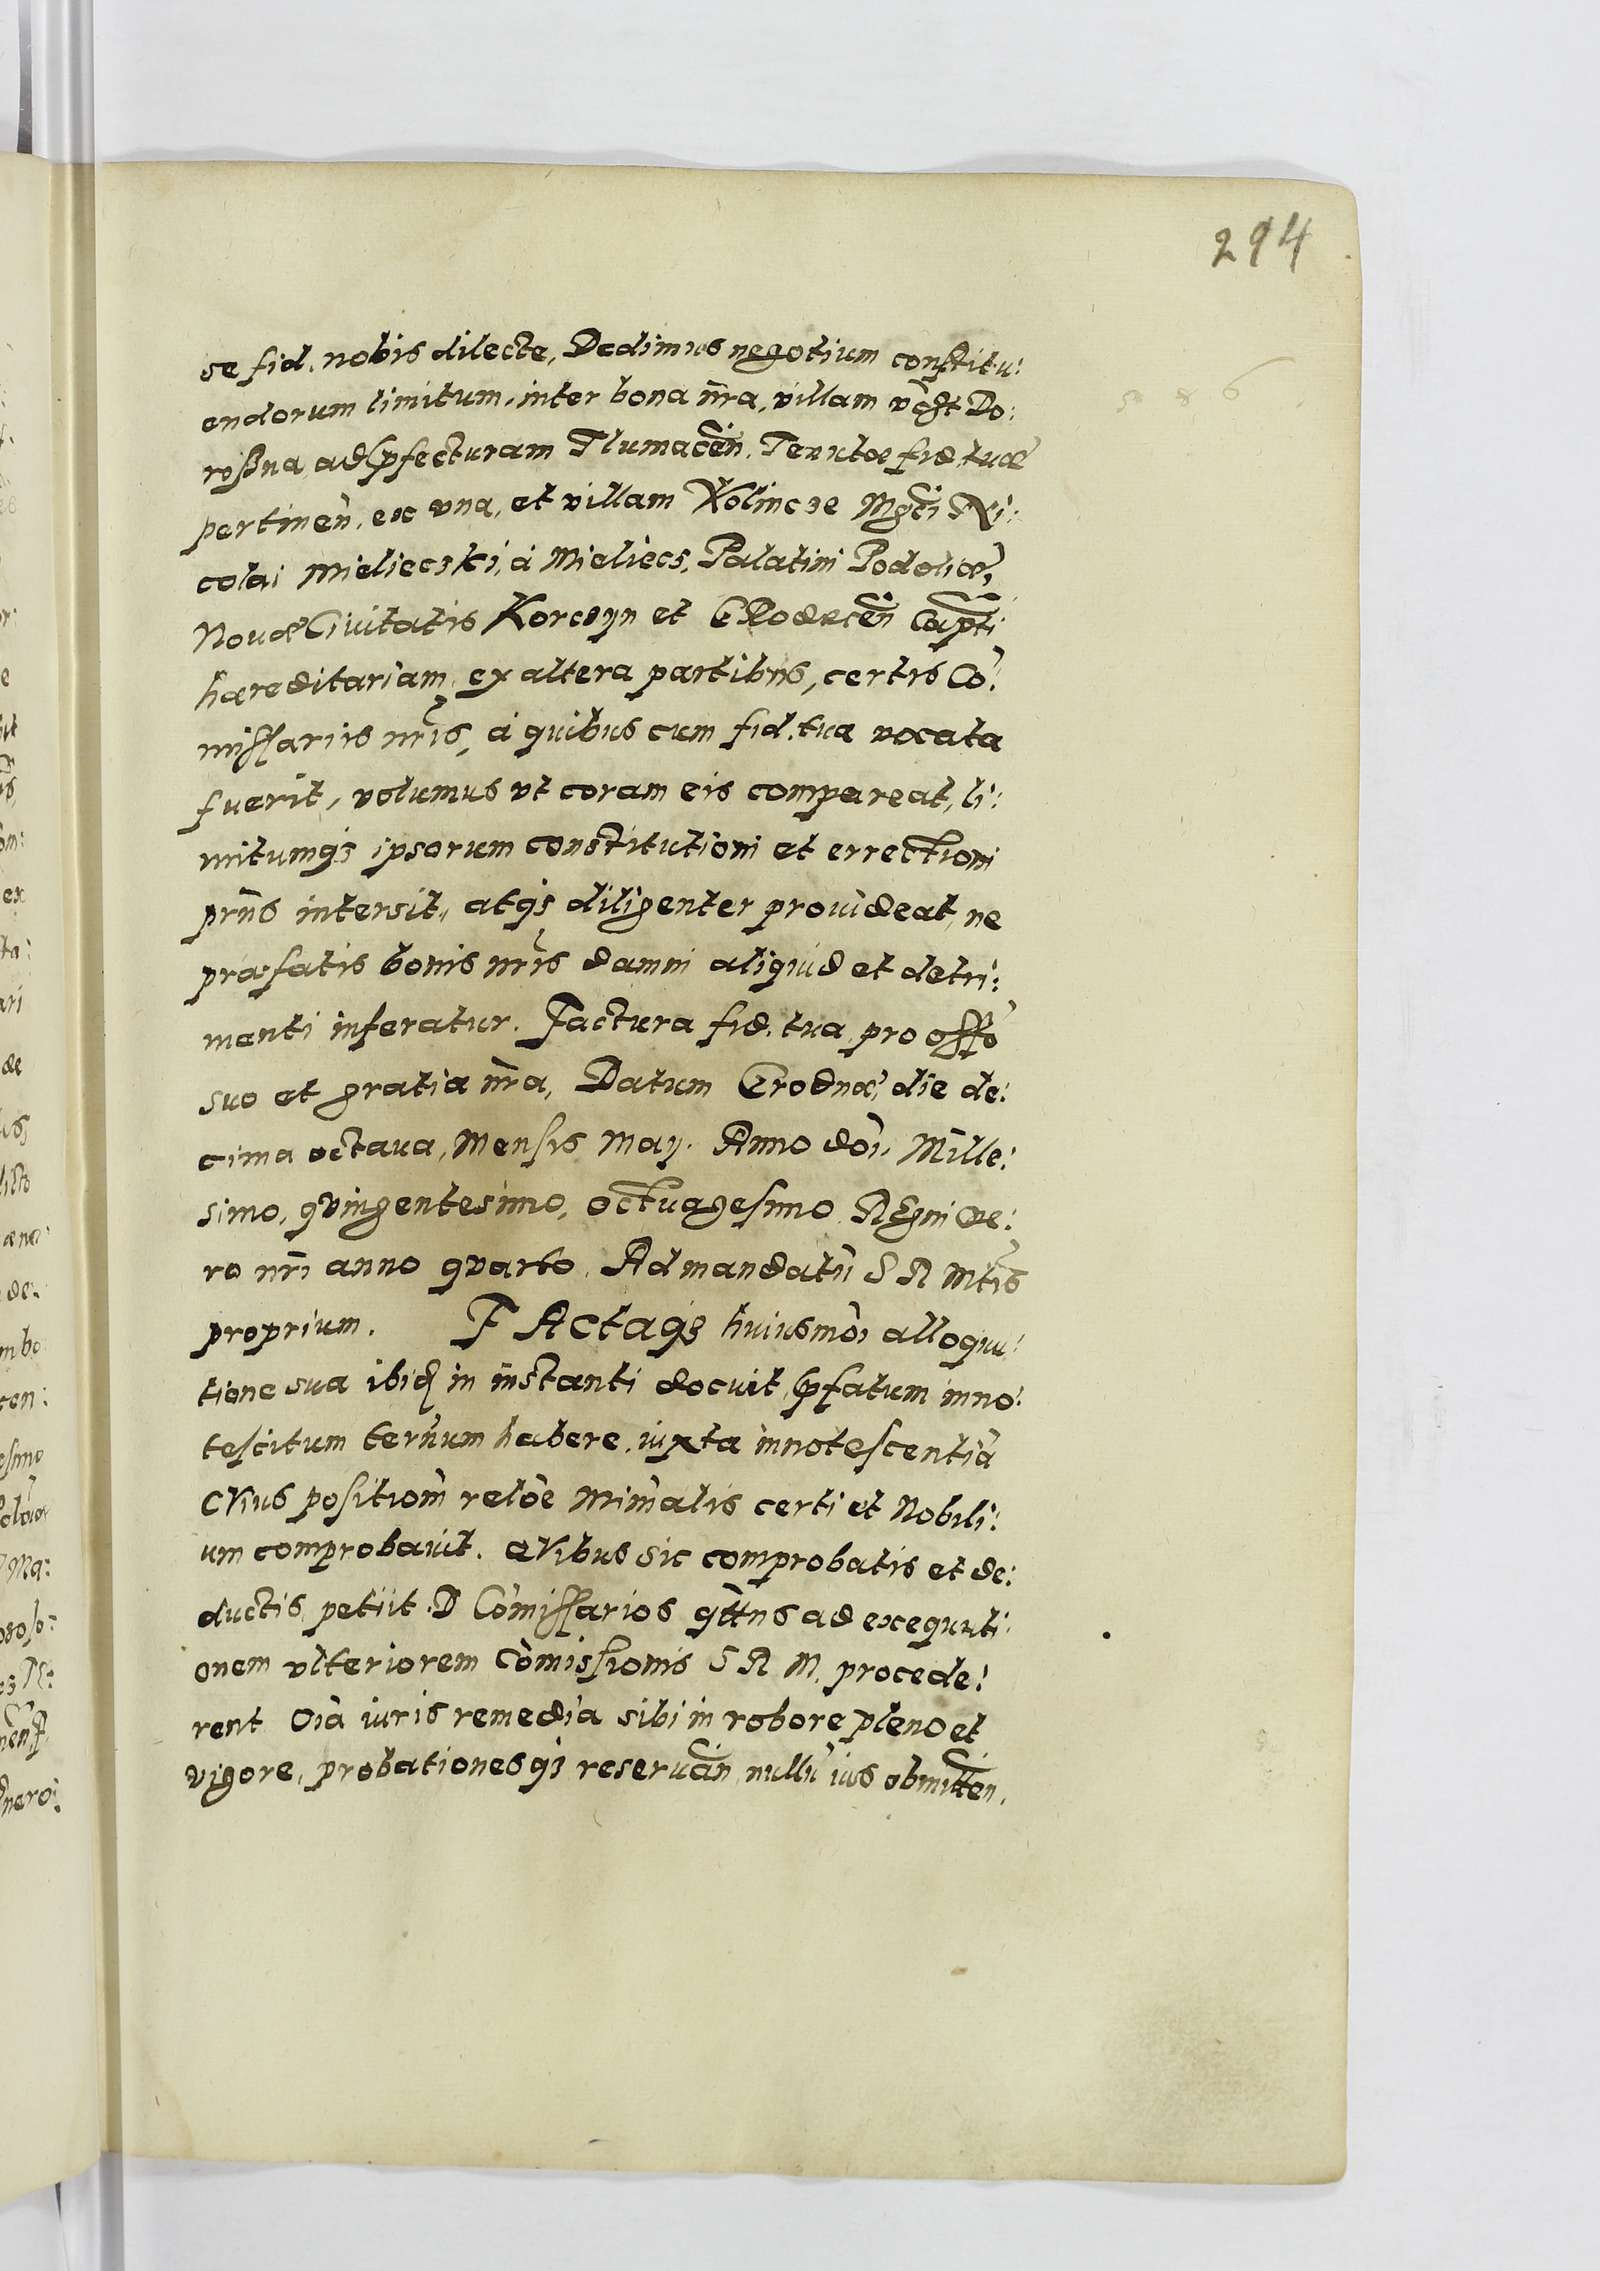 294
se fid. nobis dilecte, Dedimus negotium constitu:
endorum limitum, inter bona nr̃a, villam vcȥt Do:
roßna, ad p̱fecturam Tlumacen̄. Tenutæ fid. tuæ
pertinen̄, ex vna, et villam Kolincze Mgci Ni:
colai Mielieczki, à Mieliecz, Palatini Podoliæ,
Nouæ Ciuitatis Korczyn et GRodecen̄ Capti
hæreditariam, ex altera partibus, certis Co:
missariis nr̃is, à quibus cum fid. tua vocata
fuerit, volumus vt coram eis compareat, li:
mitumqȝ ipsorum constitutioni et errectioni
prñs intersit, atqȝ diligenter prouideat, ne
præfatis bonis nr̃is damni aliquid et detri:
menti inferatur. Factura fid. tua, pro offo
suo et gratia nr̃a, Datum Grodnæ, die de:
cima octaua, Mensis May. Anno doi, Mille:
simo, qvingentesimo, octuagesimo Regni ve:
ro nr̃i anno qvarto. Ad mandatū S R Mtis
proprium. FActaqȝ huiusmoi alloquu:
tione sua ibid in instanti docuit, p̱fatum inno:
tescitum ternum habere, iuxta innotescentiā
CVius positiom reloe Mimalis certi et Nobili:
um comprobauit. QVibus sic comprobatis et de:
ductis, petiit D Comissarios qttns ad exequuti:
onem vlteriorem Comissionis S R M. procede:
rent Oia iuris remedia sibi in robore pleno et
vigore, probationesqȝ reseruan, nullū ius obmitten.